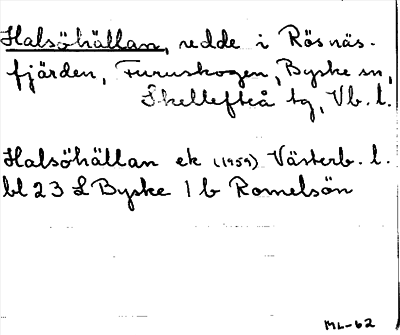 Halsöhällan, redde i Rösnäs-
fjärden, Furuskogen, Byske sn,
Skellefteå tg, Vb. l.
Halsöhällan ek (1959) Västerb. l.
bl 23 L Byske 1 b Romelsön
ML-62